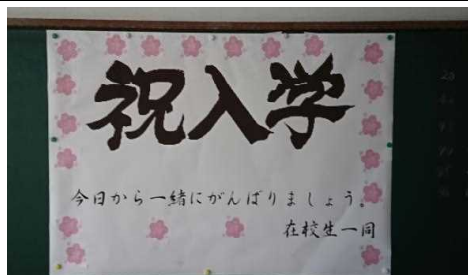 祝入学
今日から一緒にがんばりましょう。
在校生一同